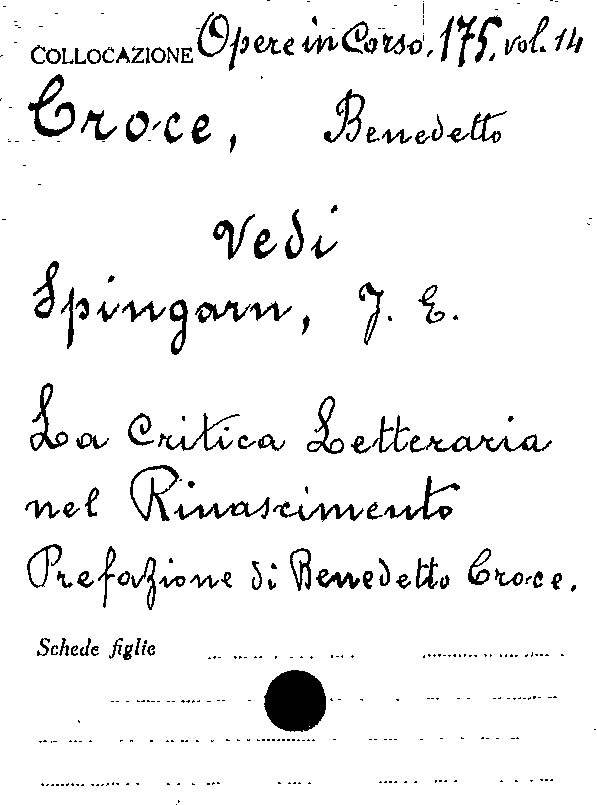 COLLOCAZIONE Opere in Corso. 175. vol. 14
Croce, Benedetto
Vedi
Spingarn, J. E.
La Critica Letteraria
nel Rinascimento
Prefazione di Benedetto Croce.
Schede figlie